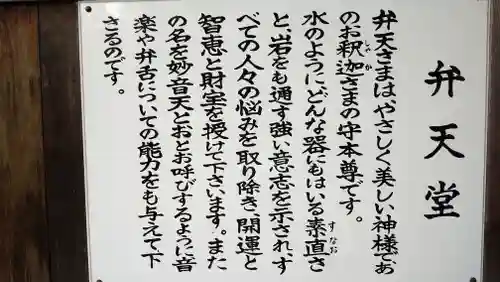 弁天堂
弁天さまは、やさしく美しい神様でお
のお釈迦さまの守本尊です。
しゃか
水のようにどんな器にもはいる素直さ
すなお
と、岩をも通す強い意志を示され、す
べての人々の悩みを取り除き、開運と
智恵と財宝を授けて下さいます。また
の名を妙音天とおとお呼びするように音
楽や弁舌についての能力をも与えて下
さるのです。